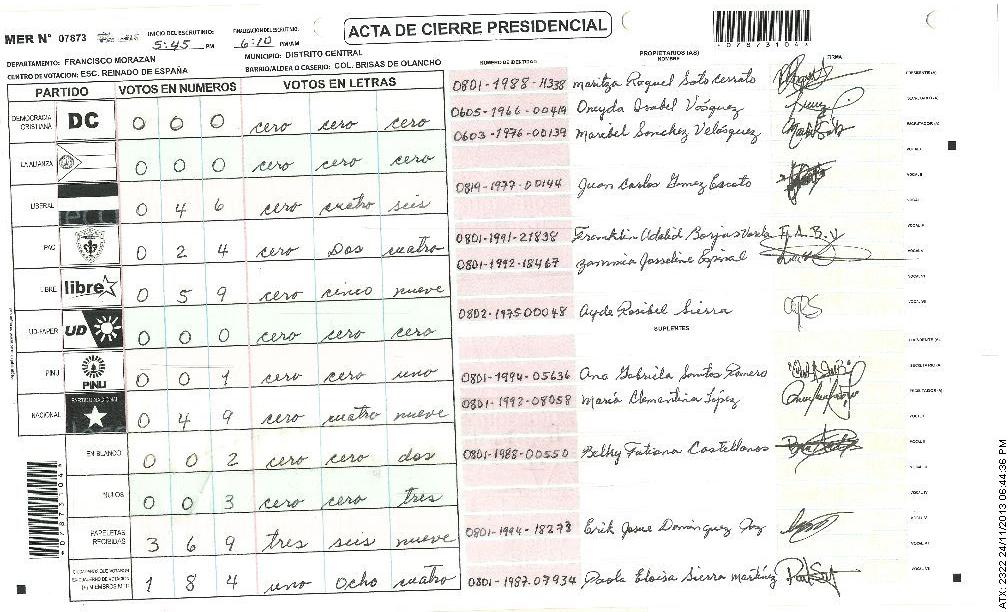 ACTA DE CIERRE PRESIDENCIAL
MER N° 07873
INICIO DEL ESCRUTINIO: 5:45 PM
FINALIZACION DEL ESCRUTINIO: 6:10 PM/AM
*07873104*
DEPARTAMENTO: FRANCISCO MORAZAN
MUNICIPIO: DISTRITO CENTRAL
CENTRO DE VOTACION: ESC. REINADO DE ESPAÑA
BARRIO/ALDEA O CASERIO: COL. BRISAS DE OLANCHO
PARTIDO VOTOS EN NUMEROS VOTOS EN LETRAS
DEMOCRACIA CRISTIANA DC 0 0 0 cero cero cero
LA ALIANZA 0 0 0 cero cero cero
LIBERAL 0 4 6 cero cuatro seis
PAC 0 2 4 cero Dos cuatro
LIBRE libre 0 5 9 cero cinco nueve
UD-FAPER UD 0 0 0 cero cero cero
PINU PINU 0 0 1 cero cero uno
NACIONAL PARTIDO NACIONAL 0 4 9 cero cuatro nueve
EN BLANCO 0 0 2 cero cero dos
NULOS 0 0 3 cero cero tres
PAPELETAS RECIBIDAS 3 6 9 tres seis nueve
1 8 4 uno ocho cuatro
*07873104*
NUMERO DE IDENTIDAD PROPIETARIOS (AS) NOMBRE FIRMA
0801-1988-11338 Maritza Raquel Soto Cerrato PRESIDENTE (A)
0605-1966-00419 Oneyda Isabel Vásquez SECRETARIO (A)
0603-1976-00139 Maribel Sanchez Velásquez ESCRUTADOR (A)
VOCAL I
0819-1977-00144 Juan Carlos Gomez Escoto VOCAL II
0801-1991-21838 Francklin Udalid Borjas Varela F.A.B.V
0801-1992-18467 Josseline Espinal
0802-1975 00048 Ayde Rosibel Sierra
SUPLENTES
0801-1994-05636 Ana Gabriela Santos Romero SECRETARIO (A)
0801-1992-08058 María Clementina López
0801-1988-00550 Belky Tatiana Castellanos
0801-1994-18273 Erik Josue Dominguez
0801-1987-07934 Paola Eloisa Sierra Martínez
ATX: 2322 24/11/2013 06:44:36 PM